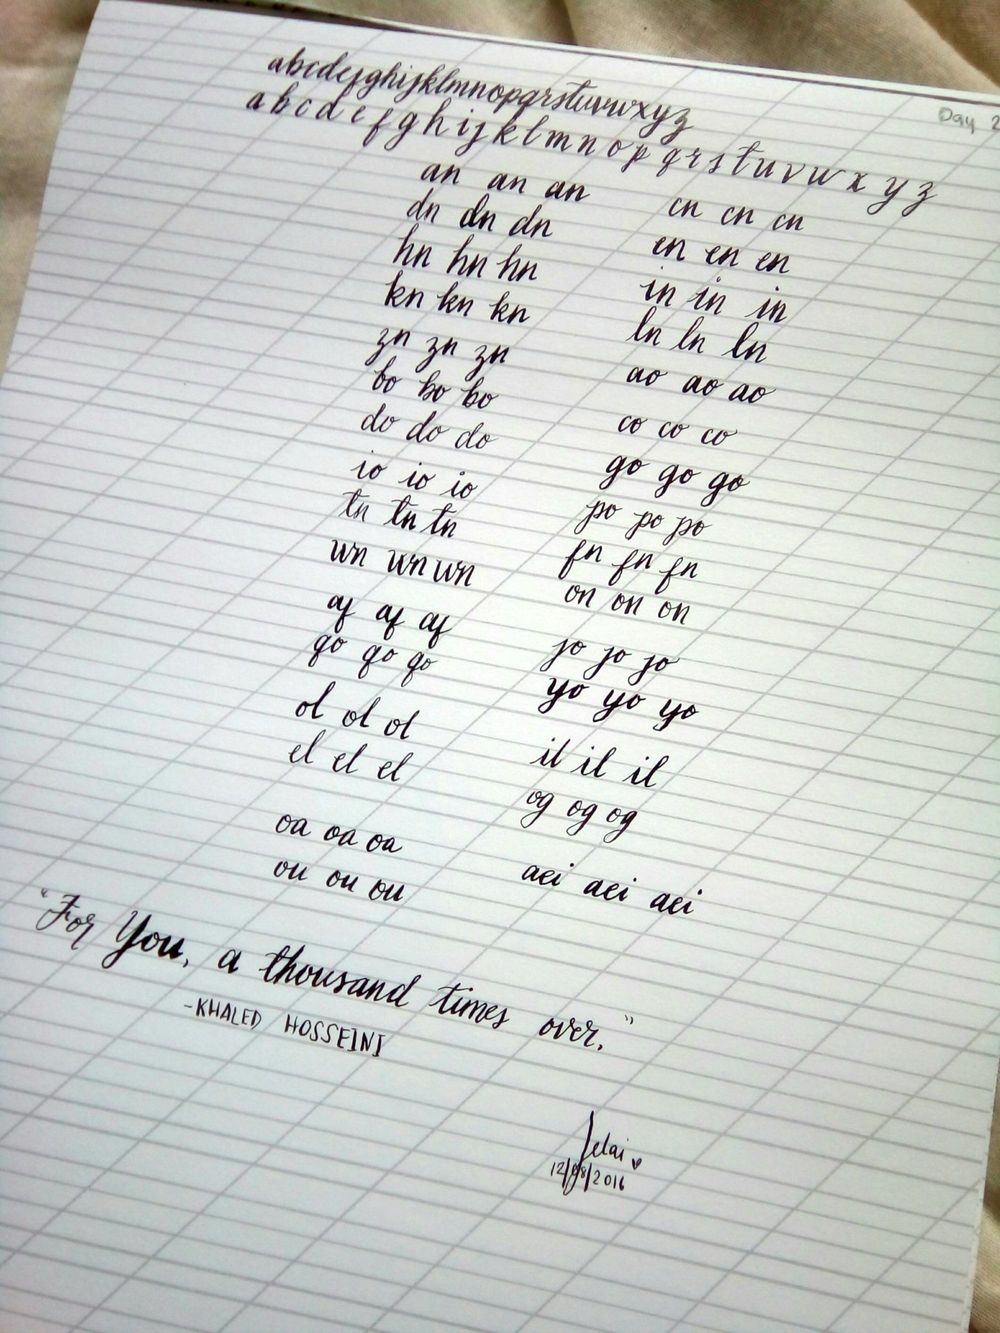 Day 2
abcdefghijklmnopqrstuvwxyz
a b c d e f g h i j k l m n o p q r s t u v w x y z
an an an cn cn cn
dn dn dn en en en
hn hn hn in in in
kn kn kn ln ln ln
zn zn zn ao ao ao
bo bo bo co co co
do do do go go go
io io io po po po
tn tn tn fn fn fn
wn wn wn on on on
af af af jo jo jo
qo qo qo yo yo yo
ol ol ol il il il
el el el og og og
oa oa oa aei aei aei
ou ou ou
"For You, a thousand times over."
-KHALED HOSSEINI
Jelai
12/08/2016